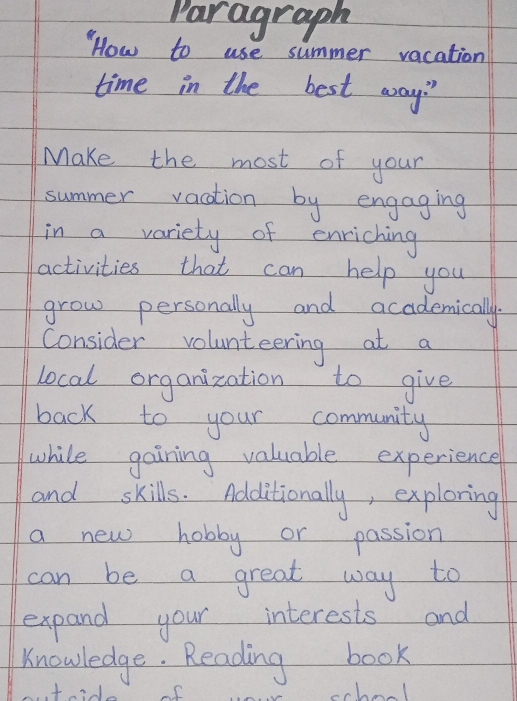 Paragraph
"How to use summer vacation
time in the best way."
Make the most of your
summer vaction by engaging
in a variety of enriching
activities that can help you
grow personally and academically.
Consider volunteering at a
local organization to give
back to your community
while gaining valuable experience
and skills. Additionally, exploring
a new hobby or passion
can be a great way to
expand your interests and
Knowledge. Reading book
outside of your school